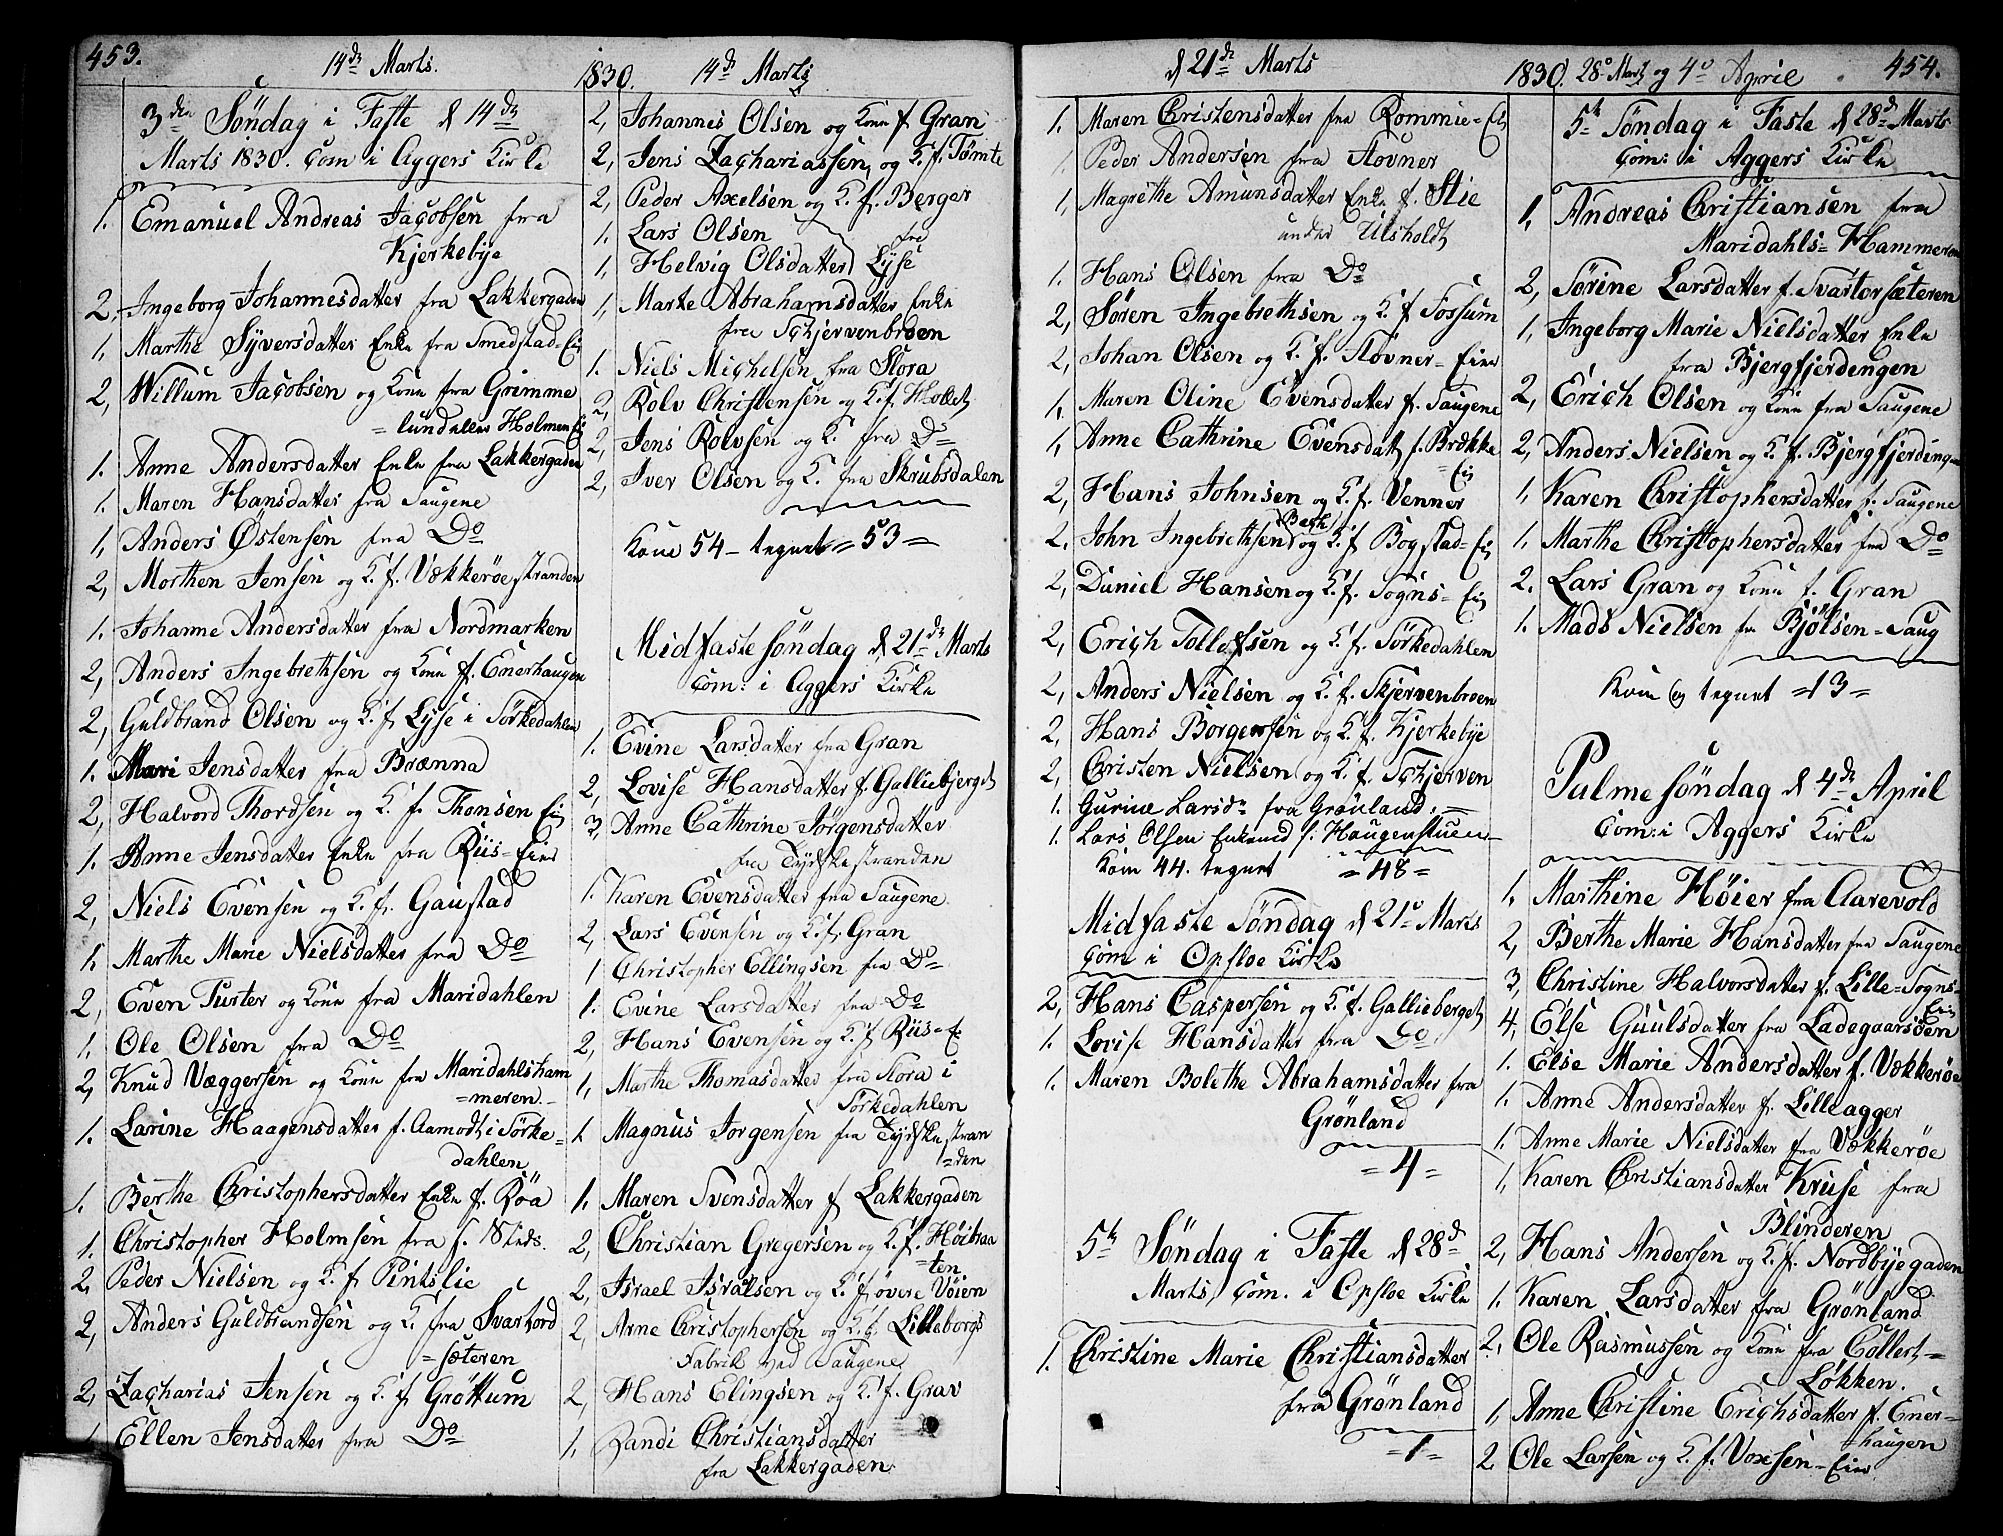 453.
14de Marts.
1830.
14de Marts
3die Søndag i Faste d 14de
Marts 1830. Com i Aggers Kirke
1. Emanuel Andreas Jacobsen fra
Kjerkebye
2, Ingeborg Johannesdatter fra Lakkergaden
1, Marthe Syversdatter Enke fra Smedstad-Eie
2, Willum Jacobsen og Kone fra Grimme
=lund eller Holmen Eie
1. Anne Andersdatter Enke fra Lakkergaden
1. Maren Hansdatter fra Saugene
1, Anders Østensen fra Do
2, Morthen Jensen og K. f. Vækkerøestranden
1. Johanne Andersdatter fra Nordmarken
2, Anders Ingebrethsen og Kone f. Enerhaugen
2, Guldbrand Olsen og K. f. Lyse i Sørkedahlen
1. Mari Jensdatter fra Brænna
2, Halvord Thordsen og K. f. Thonsen Eie
1. Anne Jensdatter Enke fra Riis-Eier
2, Niels Evensen og K. f. Gaustad
1, Marthe Marie Nielsdatter fra Do
2, Even Turter og Kone fra Maridahlen
1. Ole Olsen fra Do
2, Knud Væggersen og Kone fra Maridahlsham
=meren.
1. Larine Haagensdatter f. Aamodt i Sørke=
dahlen
1. Berthe Christophersdatter Enke f. Røa
1. Christopher Holmsen fra f. Steds.
2, Peder Nielsen og K. f. Pintslie
2, Anders Guldbrandsen og K. fra Svartord
=sæteren
2, Zacharias Jensen og K. f. Grøttum
1, Ellen Jensdatter fra Do
2, Johannes Olsen og Kone f. Gran
2, Jens Zachariassen og K. f. Tømte
2, Peder Axelsen og K. f. Berger
1. Lars Olsen
1, Helvig Olsdatter fra Lyse
1, Marte Abrahamsdatter Enke
fra Schjervenbroen
1. Niels Michelsen fra Flora
2, Rolv Christensen og K. f. Hollet
2, Jens Rolvsen og K. fra Do
2, Iver Olsen og K. fra Skrubsdalen
Kom 54 - tegnet = 53 =
Midfaste søndag d 21de Marts
Com: i Aggers Kirke
1. Evine Larsdatter fra Gran
2, Lovise Hansdatter f. Galliebjerget
3, Anne Cathrine Jørgensdatter
fra Tydskestranden
1. Karen Evensdatter fra Saugene
2, Lars Evensen og K. f. Gran
1 Christopher Ellingsen fra Do
1. Evine Larsdatter fra Do
2, Hans Evensen og K. f. Riis-E
1, Marthe Thomasdatter fra Flora i
Sørkedahlen
1. Magnus Jorgensen fra Tydskestran
=den
1. Maren Svensdatter f. Lakkergaden
2, Christian Gregersen og K. f. Høibraa
=ten
2, Israel Isralsen og K. f. øvre Vøien
2, Arne Christophersen og K. f. Lilleborgs
Fabrik ved Saugene
2, Hans Elingsen og K. f. Grav
1, Randi Christiansdatter
fra Lakkergaden.
d 21de Marts
1830. 28o Marts og 4o April
454.
1. Maren Christensdatter fra Rommie-Eie
1. Peder Andersen fra Stovner
1, Magrethe Amunsdatter Enke f. Stie
under Ulsholdt
1. Hans Olsen fra Do
2, Søren Ingebrethsen og K. f. Fossum
2, Johan Olsen og K. f. Stovner-Eier
1, Maren Oline Evensdatter f. Saugene
1, Anne Cathrine Evensdat f. Brække
=Eie
2, Hans Johnsen og K. f. Venner
2. John Ingebrethsen Bech og K. f. Bogstad-Eie
2, Daniel Hansen og K. f. Sogns-Eie
2, Erich Tollefsen og K. f. Sørkedahlen
2, Anders Nielsen og K. f. Skjervenbroen
2, Hans Borgersen og K. f. Kjerkebye
2, Christen Nielsen og K. f. Schjerven
1. Gurine Larsdr fra Grønland.
1. Lars Olsen Enkemd f. Haugenstuen
Kom 44. tegnet =48=
Midfaste Søndag d 21o Marts
Com i Opsloe Kirke
2, Hans Caspersen og K. f. Gallieberget
1. Lovise Hansdatter fra Do
1. Maren Bolethe Abrahamsdatter fra
Grønland
=4=
5te Søndag i Faste d 28de
Marts, Com. i Opsloe Kirke
1. Christine Marie Christiansdatter
fra Grønland
=1=
5te Søndag i Faste d 28de Marts
Com: i Aggers Kirke
1, Andreas Christiansen fra
Maridahls=Hammeren
2, Sørine Larsdatter f. Svartorsæteren
1, Ingeborg Marie Nielsdatter Enke
fra Bjergfjerdengen
2, Erich Olsen og Kone fra Saugene
2, Anders Nielsen og K. f. Bjergfjerdingen
1, Karen Christophersdatter f. Saugene
1. Marthe Christophersdatter fra Do
2. Lars Gran og Kone f. Gran
1. Mads Nielsen fra Bjølsen-Saug
Kom og tegnet =13=
Palmesøndag d 4de April
Com: i Aggers Kirke
1, Marthine Høier fra Aarevold
2, Berthe Marie Hansdatter fra Saugene
3, Christine Halvorsdatter f. Lille-Sogns-
Eie
4, Else Guulsdatter fra Ladegaarsøen
1. Else Marie Andersdatter f. Vækkerøe
1. Anne Andersdatter f. Lilleagger
1. Anne Marie Nielsdatter fra Vækkerøe
1, Karen Christiansdatter Kruse fra
Blinderen
2, Hans Andersen og K. f. Nordbyegaden
1. Karen Larsdatter fra Grønland
2, Ole Rasmussen og Kone fra Collert=
Løkken.
1, Anne Christine Erichsdatter f. Ener-
haugen
2. Ole Larsen og K. f. Voxsen-Eier